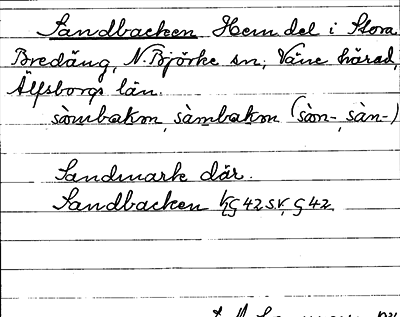 Sandbacken Hemdel i Stora
Bredäng, N. Björke sn, Väne härad,
Älfsborgs län.
sòmbakɷn, sàmbakɷn (sòn-, sàn-)
Sandmark där.
Sandbacken G 42 s.v. G 42.